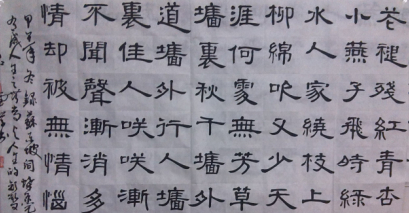 花褪殘紅青杏
小燕子飛時綠
水人家繞枝上
柳綿吹又少天
涯何處無芳草
墻裏秋千墻外
道墻外行人墻
裏佳人咲咲漸
不聞聲漸消多
情却被無情惱
甲午年冬錄蘇東坡詞